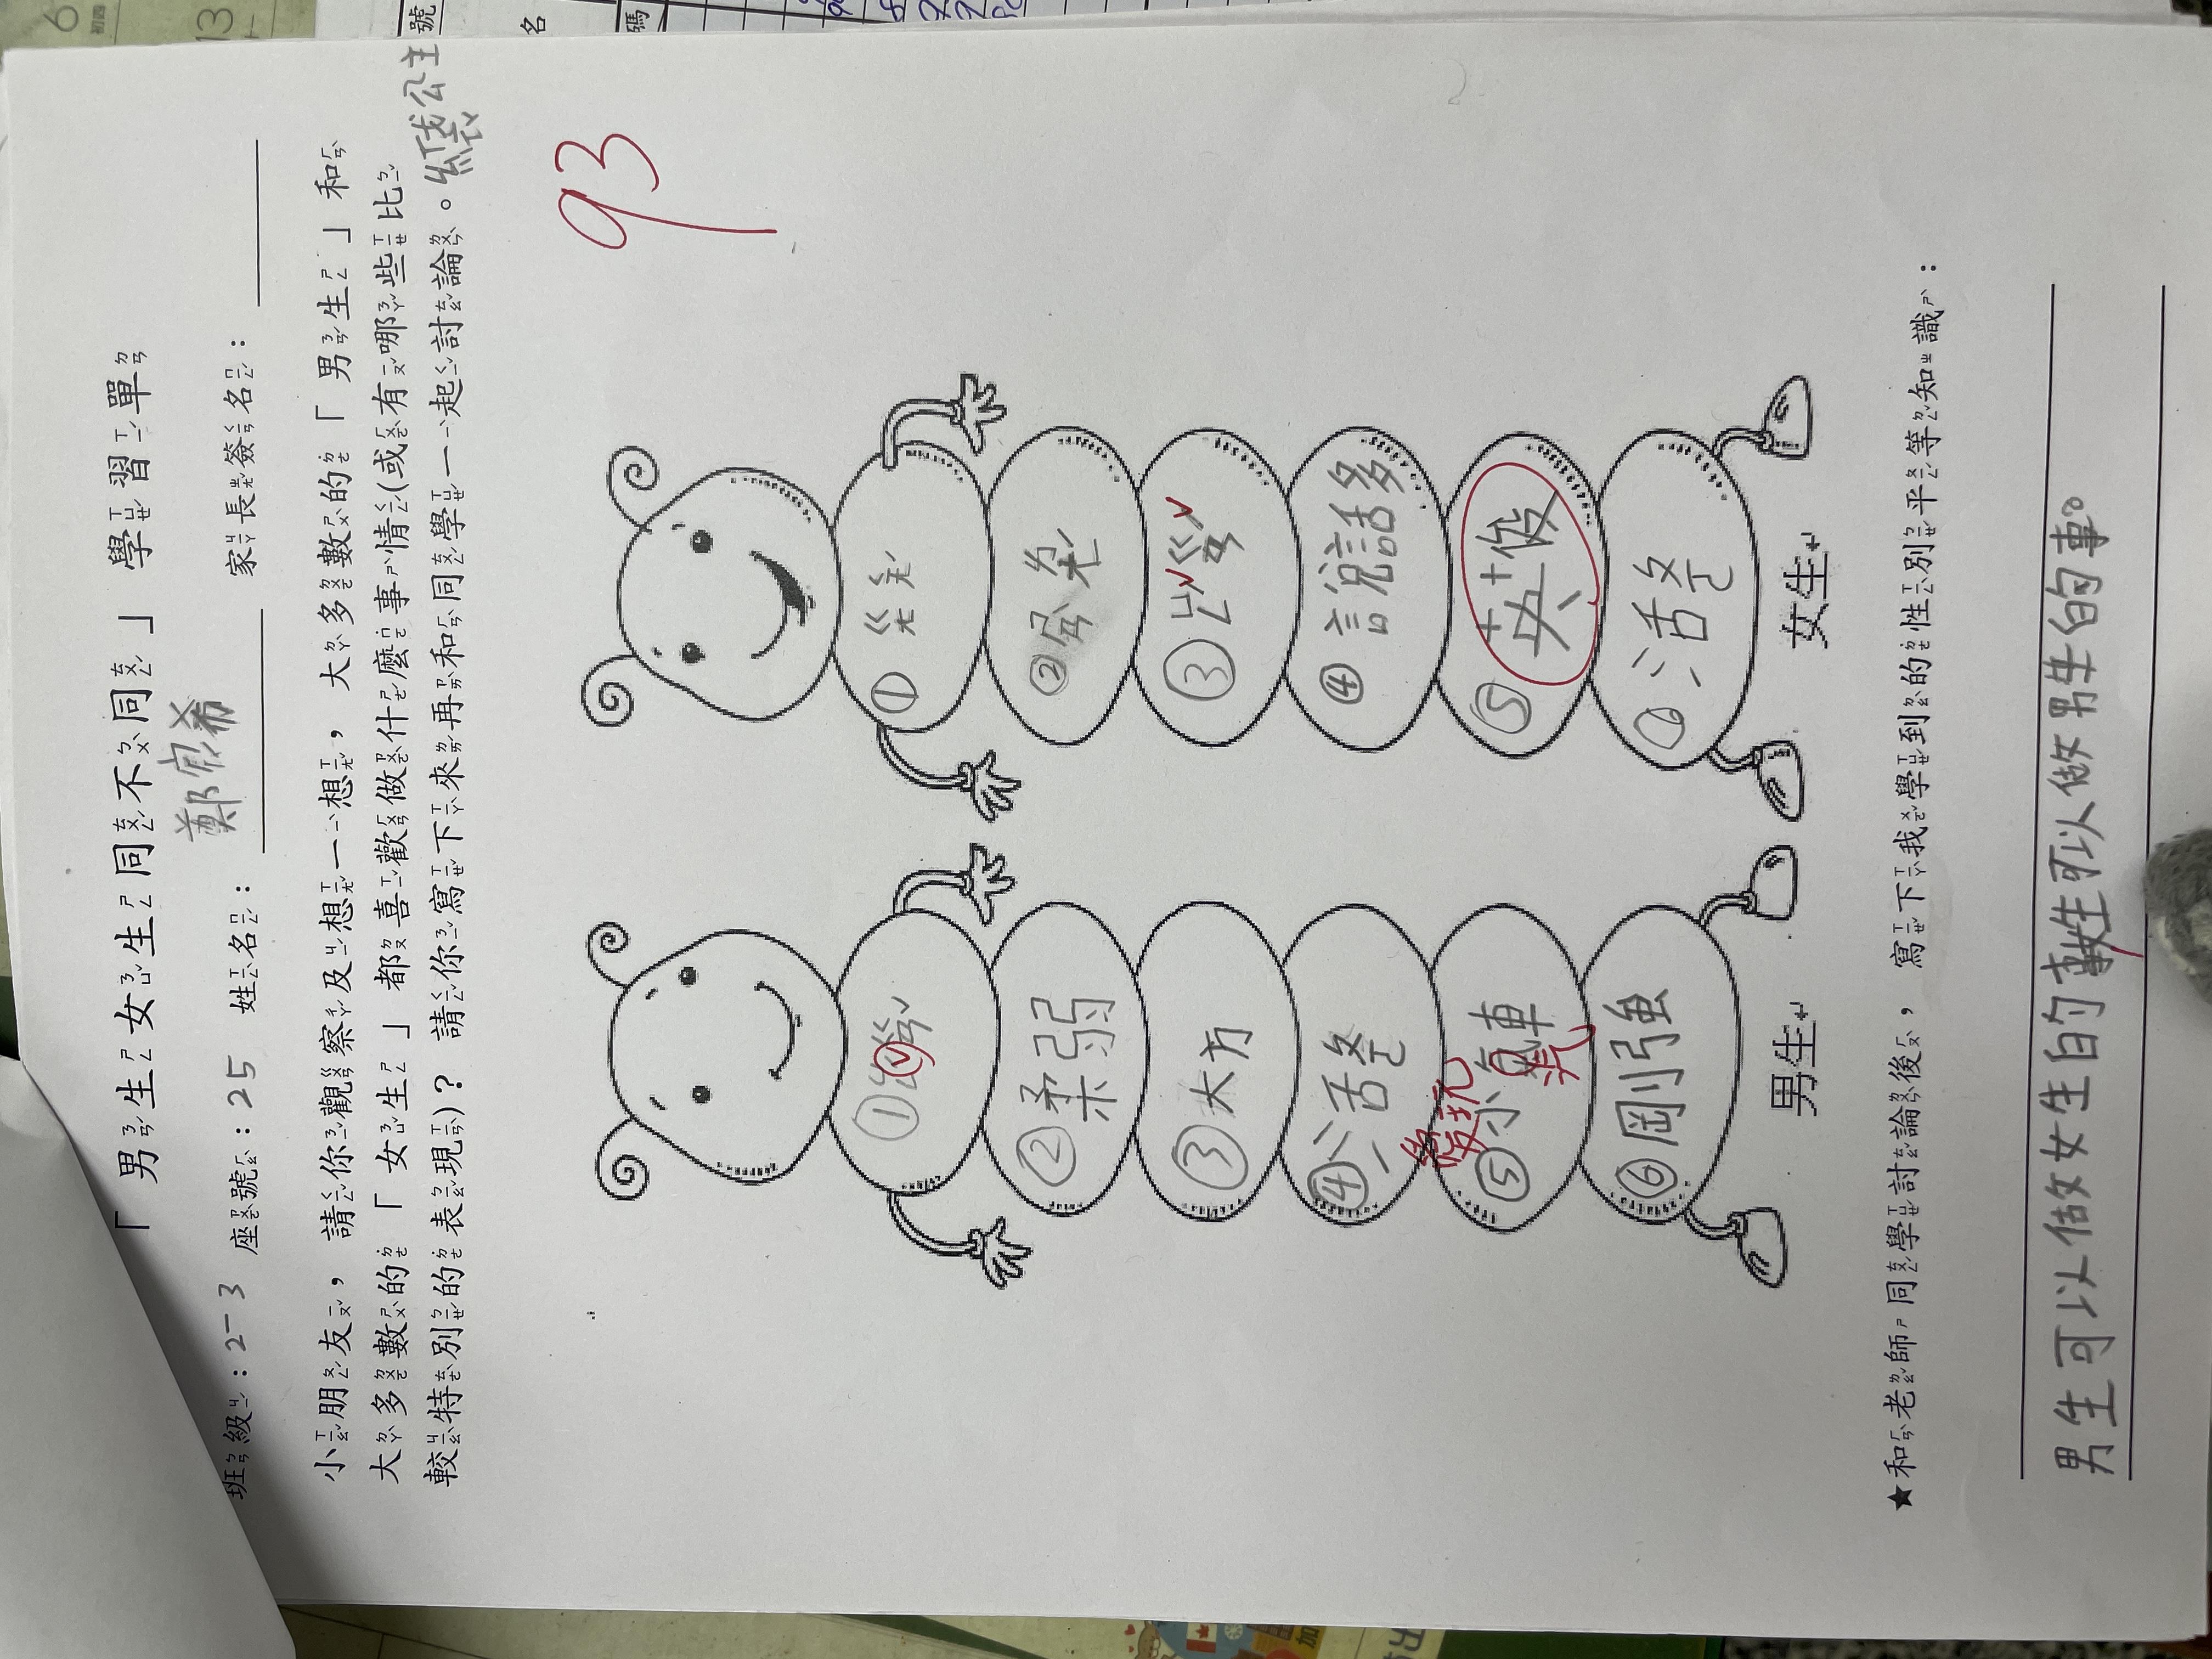 「男生女生同不同」學習單
班級：2-3 座號：25 姓名：鄭 希 家長簽名：
小朋友，請你觀察及想一想，大多數的「男生」和
大多數的「女生」都喜歡做什麼事情(或有哪些比
較特別的表現)？請你寫下來再和同學一起討論。
紙袋公主
93
①
②柔弱
③大方
④活
⑤小汽車
愛玩
汽
⑥剛強
男生
①
②
③
④說話多
⑤英俊
6活
女生
★和老師同學討論後，寫下我學到的性別平等知識：
男生可以做女生的事女生可以做男生的事。
號
名
碼
6
13